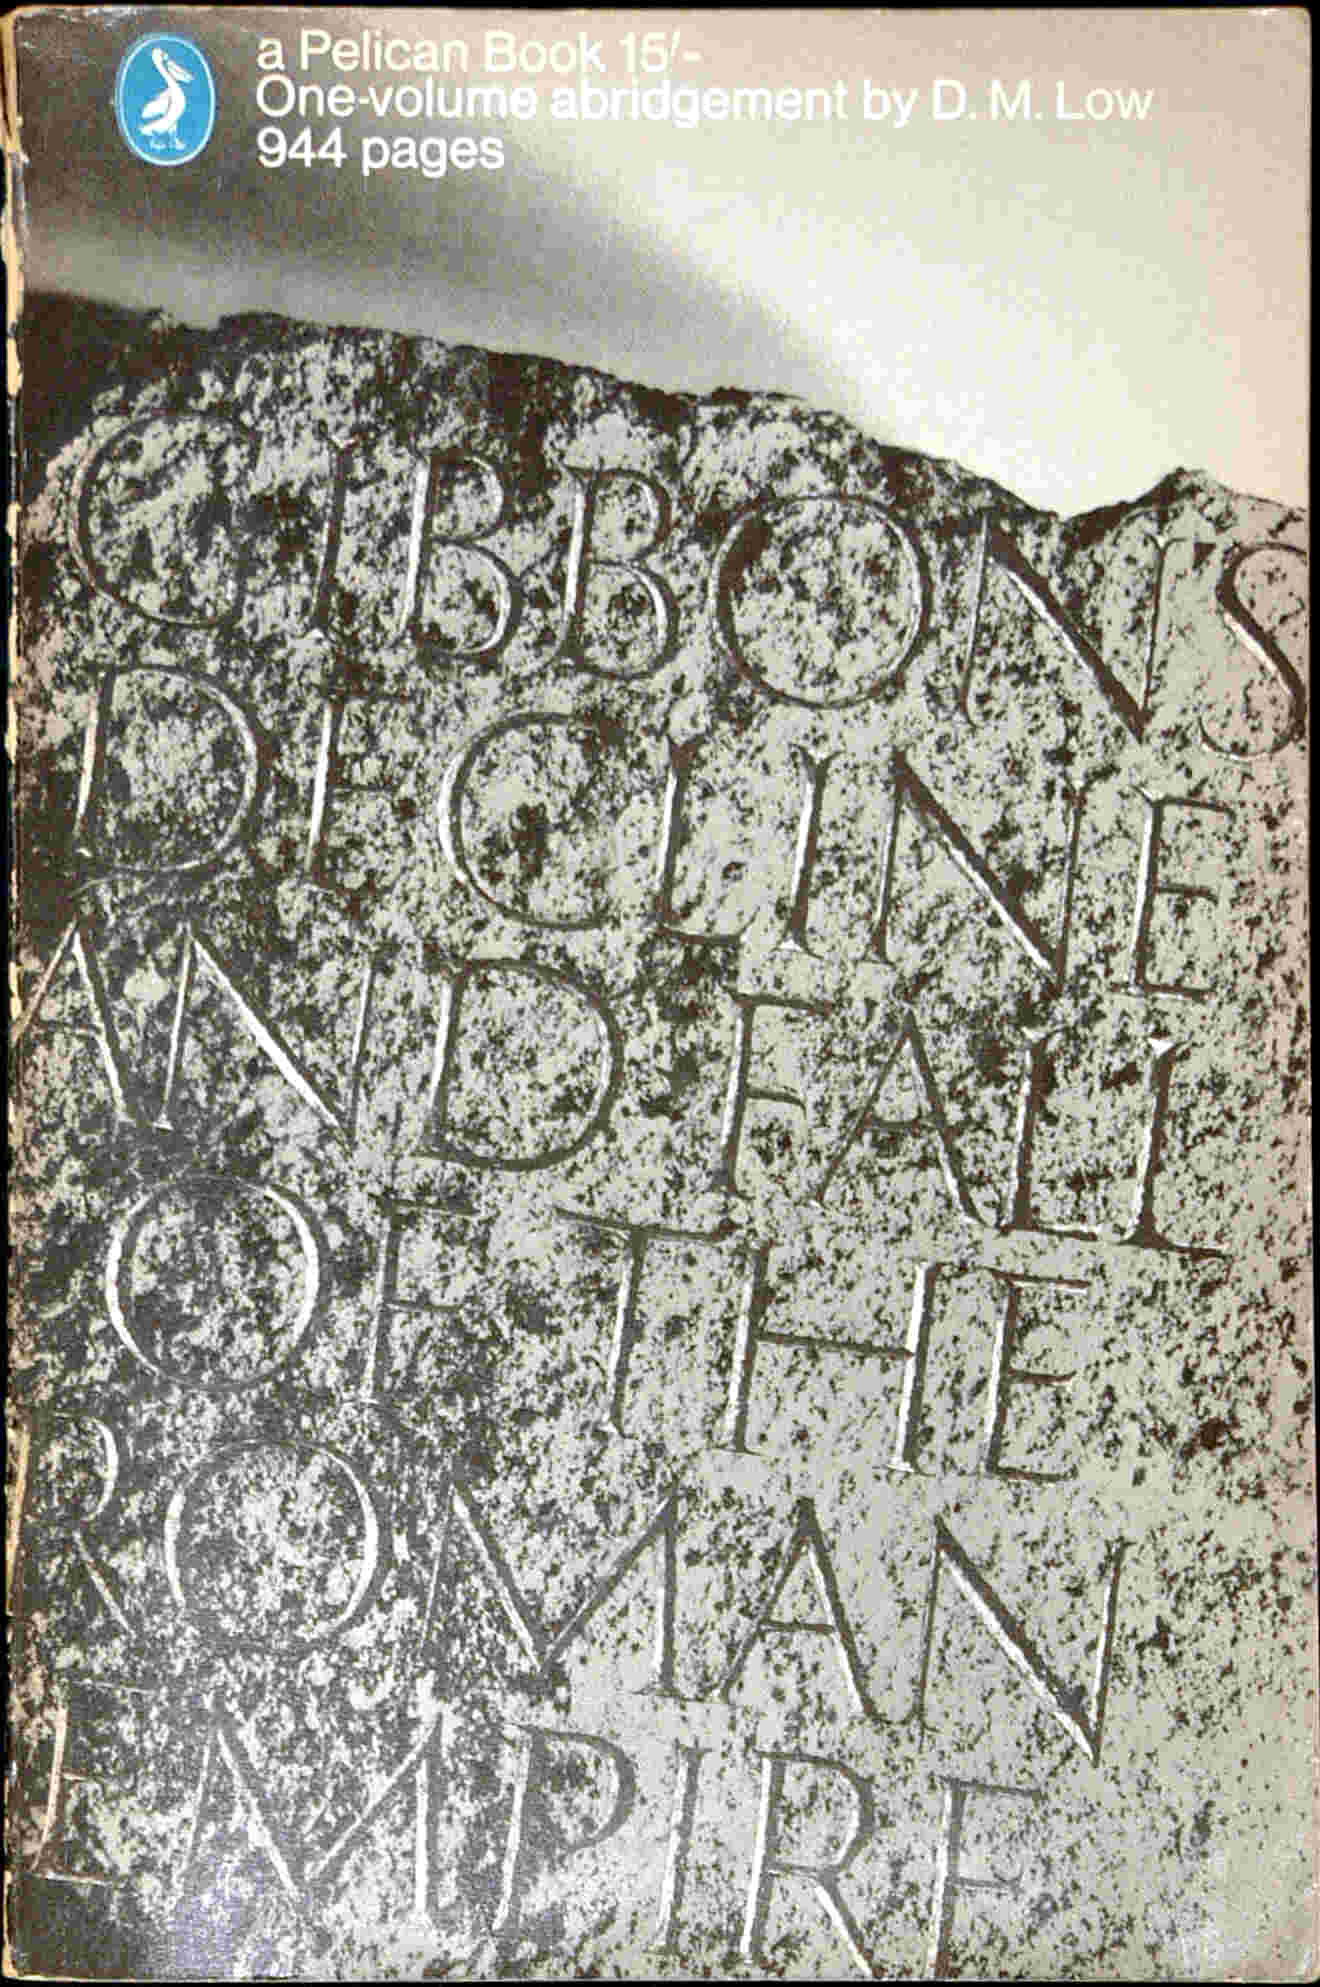 a Pelican Book 15/-
One-volume abridgement by D. M. Low
944 pages
GIBBON'S
DECLINE
AND FALL
OF THE
ROMAN
EMPIRE